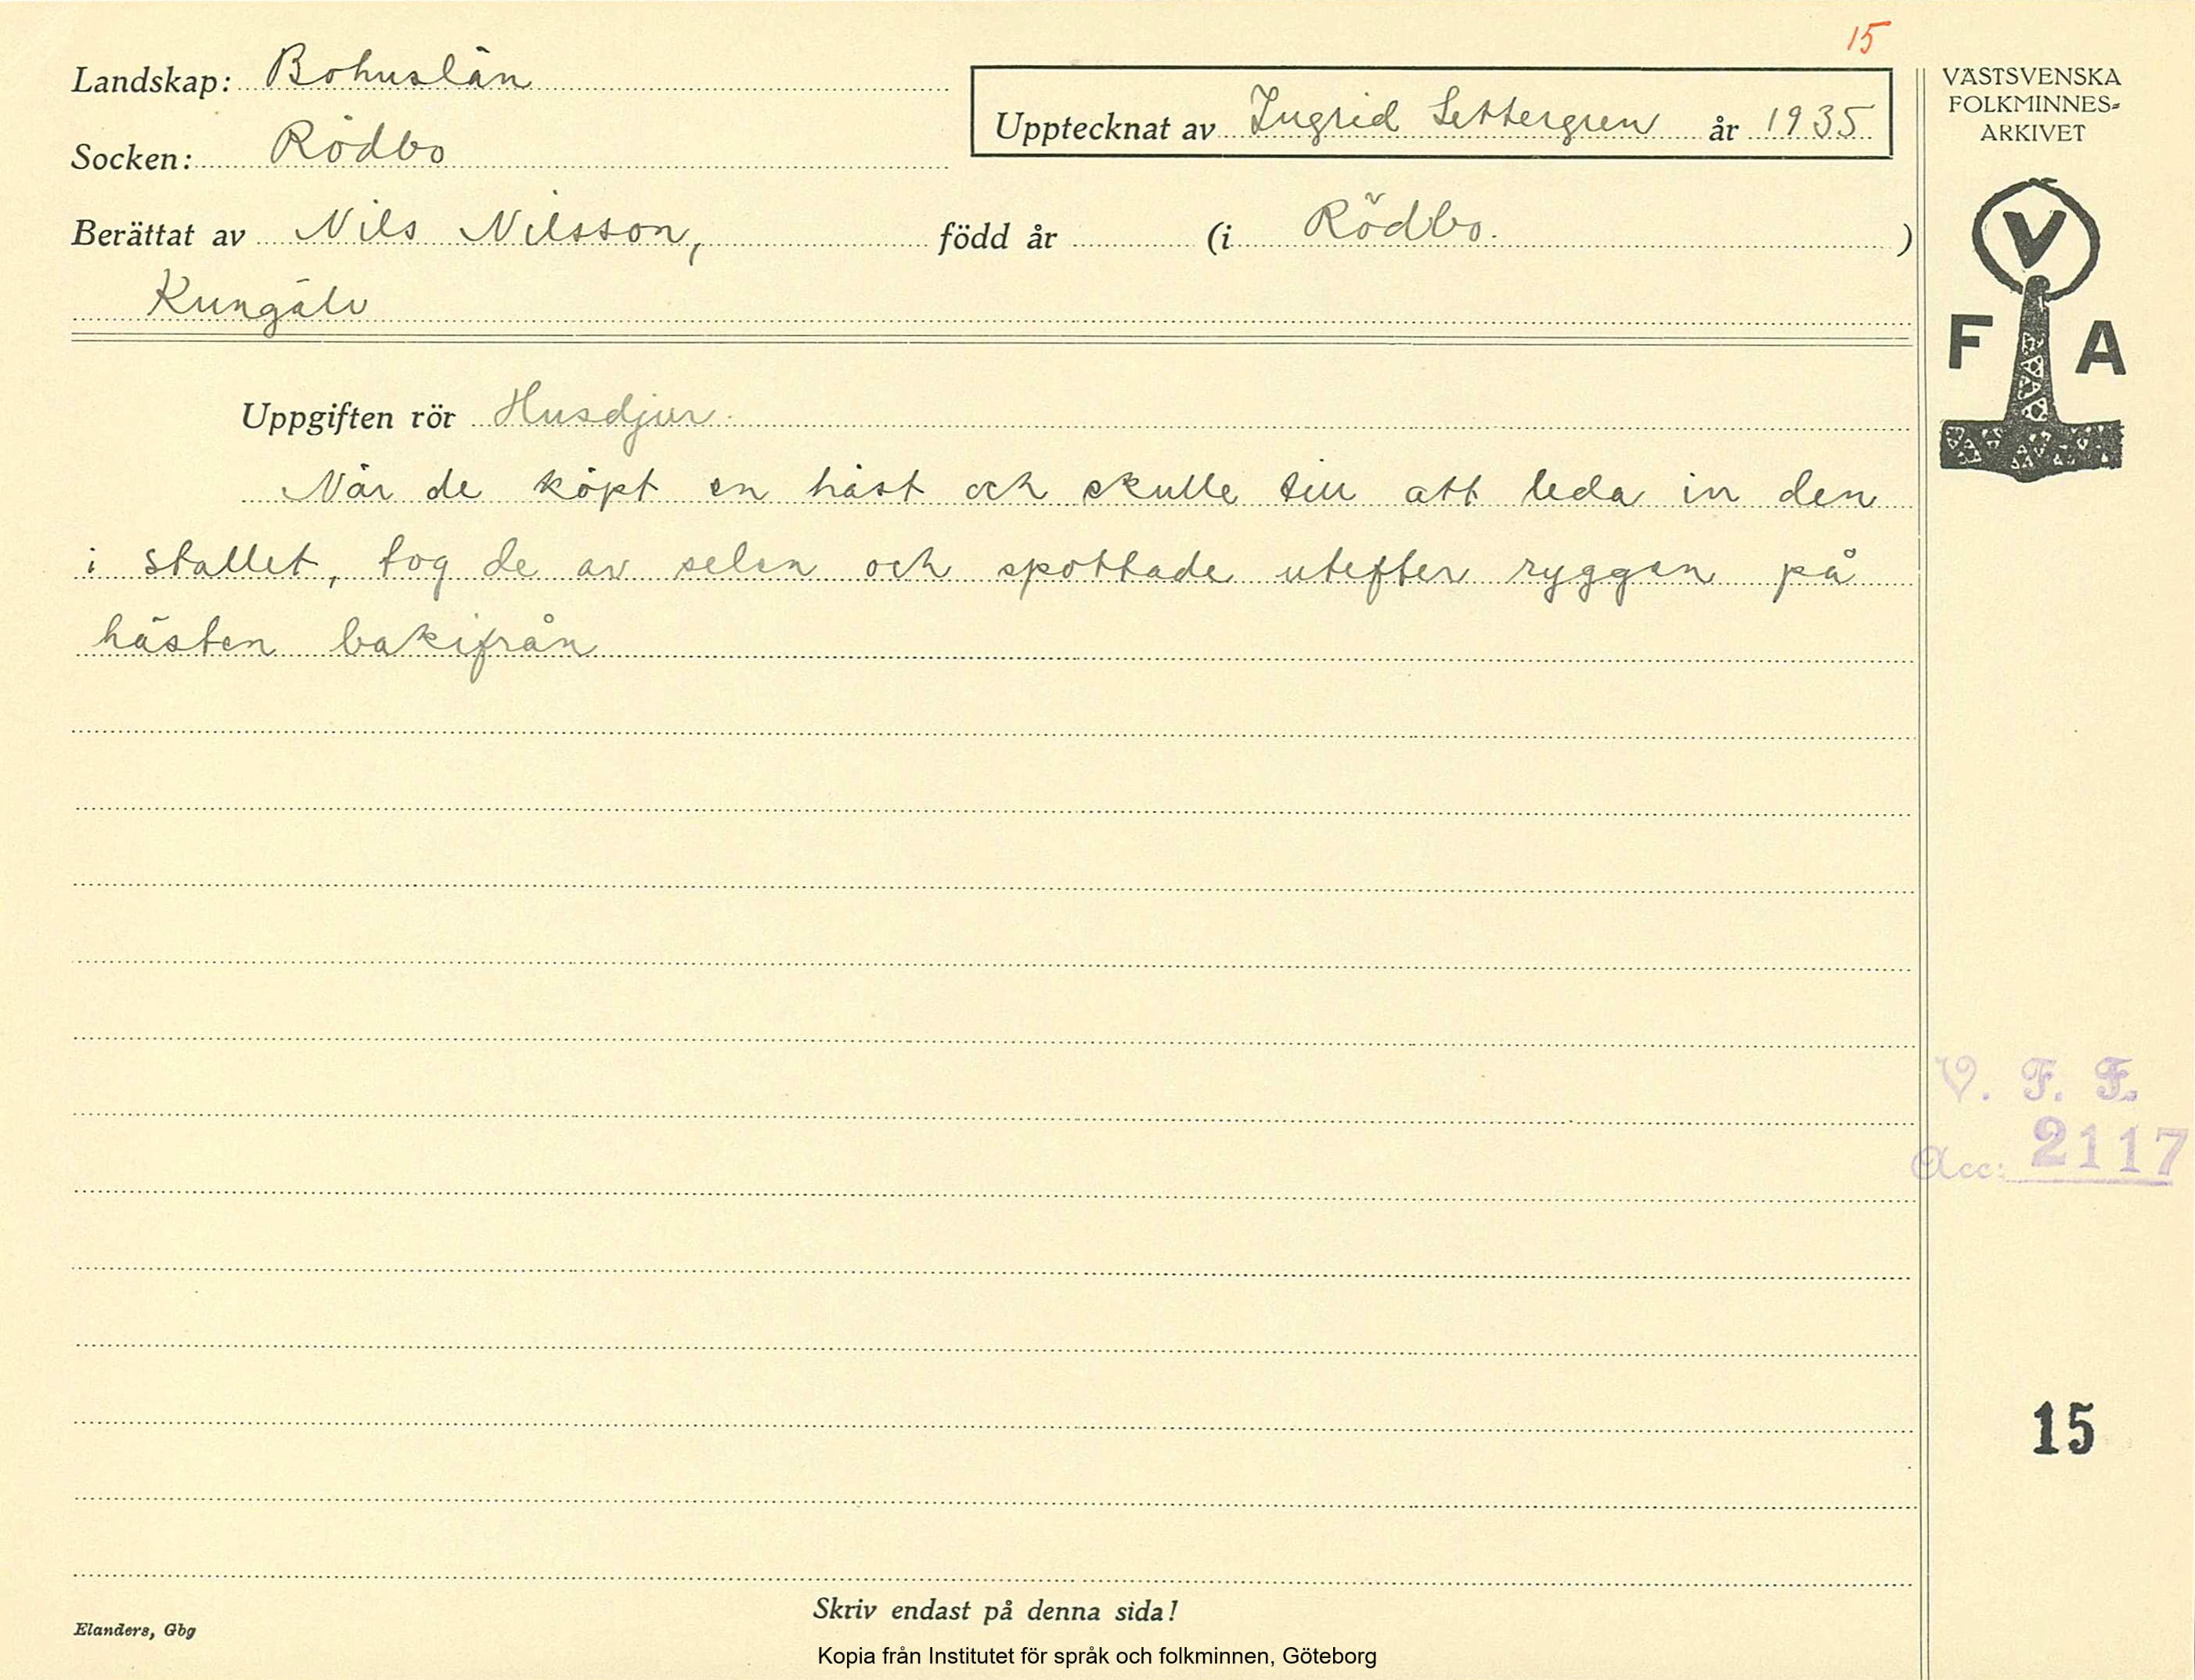 15
Landskap: Bohuslän
Upptecknat av Ingrid Settergren år 1935
Socken: Rödbo
Berättat av Nils Nilsson, född år (i Rödbo. )
Kungälv
Uppgiften rör Husdjur.
När de köpt en häst och skulle till att leda in den
i stallet, tog de av selen och spottade utefter ryggen på
hästen bakifrån
Skriv endast på denna sida!
Elanders, Gbg
Kopia från Institutet för språk och folkminnen, Göteborg
VÄSTSVENSKA
FOLKMINNES-
ARKIVET
V
F A
V. F. F.
Acc: 2117
15